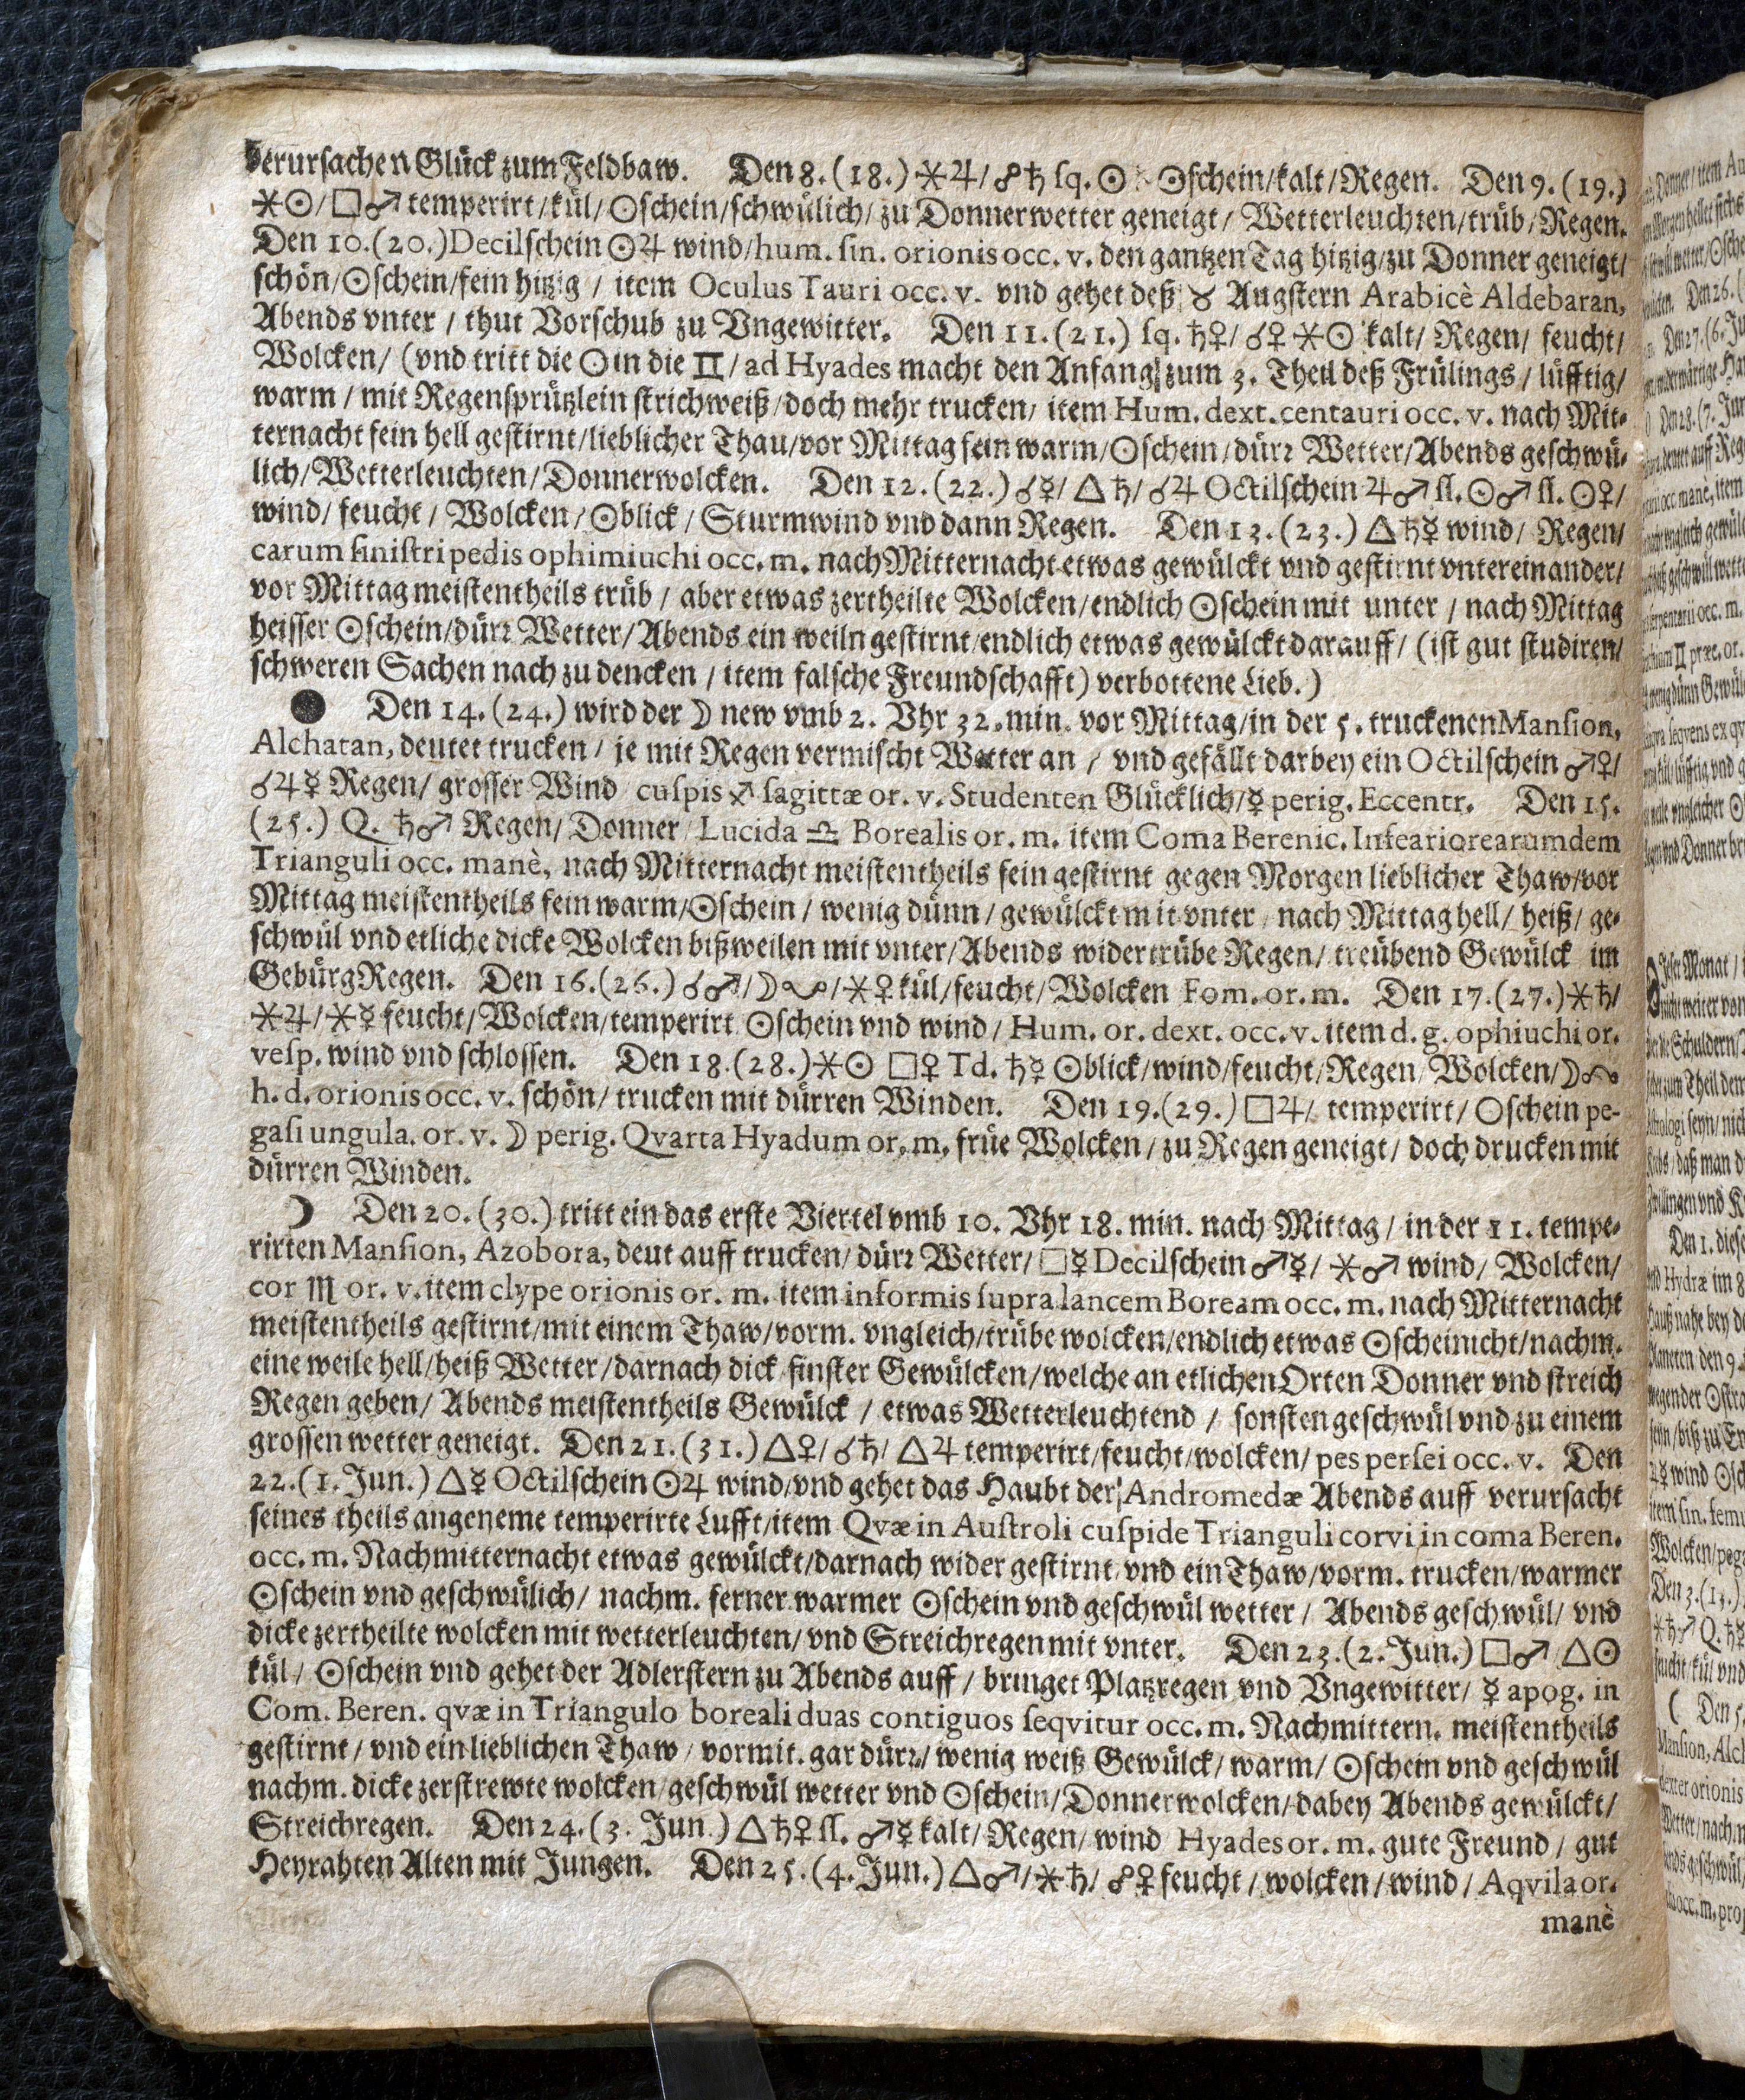 verursachen Glück zum Feldbaw. Den 8. (18.) ⚹♃/ ☍♄ sq. ☉ ☉schein/kalt/Regen. Den 9. (19.)
⚹☉/ □♂ temperirt/kül/☉schein/schwülich/zu Donnerwetter geneigt/ Wetterleuchten/trüb/Regen.
Den 10.(20.)Decilschein ☉♃ wind/hum. sin. orionis occ. v. den gantzen Tag hitzig/zu Donner geneigt/
schön/☉schein/fein hitzig / item Oculus Tauri occ. v. vnd gehet deß ♉ Augstern Arabicè Aldebaran,
Abends vnter / thut Vorschub zu Vngewitter. Den 11. (21.) sq. ♄♀/ ☌♀ ⚹☉ kalt/ Regen/ feucht/
Wolcken/ (vnd tritt die ☉ in die ♊/ ad Hyades macht den Anfang zum 3. Theil deß Frülings / lüfftig/
warm / mit Regensprützlein strichweiß/doch mehr trucken/ item Hum. dext. centauri occ. v. nach Mit-
ternacht fein hell gestirnt/lieblicher Thau/vor Mittag fein warm/☉schein/dürꝛ Wetter/Abends geschwü-
lich/Wetterleuchten/Donnerwolcken. Den 12. (22.) ☌☿/ △♄/ ☌♃ Octilschein ♃♂ ſſ. ☉♂ ſſ. ☉♀/
wind/ feucht / Wolcken/☉blick / Sturmwind vnd dann Regen. Den 13. (23.) △♄☿ wind/ Regen/
carum sinistri pedis ophimiuchi occ. m. nach Mitternacht etwas gewülckt vnd gestirnt vntereinander/
vor Mittag meistentheils trüb / aber etwas zertheilte Wolcken/endlich ☉schein mit unter / nach Mittag
heisser ☉schein/dürꝛ Wetter/Abends ein weiln gestirnt/endlich etwas gewülckt darauff/ (ist gut studiren/
schweren Sachen nach zu dencken / item falsche Freundschafft) verbottene Lieb.)
● Den 14. (24.) wird der ☽ new vmb 2. Vhr 32. min. vor Mittag/in der 5. truckenen Mansion,
Alchatan, deutet trucken / je mit Regen vermischt Wetter an / vnd gefällt darbey ein Octilschein ♂♀/
☌♃☿ Regen/ grosser Wind cuspis ♐ sagittæ or. v. Studenten Glücklich/☿ perig. Eccentr. Den 15.
(25.) Q. ♄♂ Regen/ Donner/ Lucida ♎ Borealis or. m. item Coma Berenic. Infeariorearumdem
Trianguli occ. manè, nach Mitternacht meistentheils fein gestirnt gegen Morgen lieblicher Thaw/vor
Mittag meistentheils fein warm/☉schein / wenig dünn / gewülckt mit vnter / nach Mittag hell/ heiß/ ge-
schwül vnd etliche dicke Wolcken bißweilen mit vnter/Abends wider trübe Regen/ treübend Gewülck im
Gebürg Regen. Den 16.(26.) ☌♂/☽☋/⚹♀ kül/feucht/Wolcken Fom. or. m. Den 17.(27.)⚹♄/
⚹♃/⚹☿ feucht/Wolcken/temperirt ☉schein vnd wind/ Hum. or. dext. occ. v. item d. g. ophiuchi or.
vesp. wind vnd schlossen. Den 18.(28.)⚹☉ □♀ Td. ♄☿ ☉blick/wind/feucht/Regen/Wolcken/☽☊
h. d. orionis occ. v. schön/ trucken mit dürren Winden. Den 19.(29.) □♃/ temperirt/ ☉schein pe-
gasi ungula. or. v. ☽ perig. Qvarta Hyadum or. m. früe Wolcken / zu Regen geneigt / doch drucken mit
dürren Winden.
☽ Den 20. (30.) tritt ein das erste Viertel vmb 10. Vhr 18. min. nach Mittag / in der 11. tempe-
rirten Mansion, Azobora, deut auff trucken/ dürꝛ Wetter/ □☿ Decilschein ♂☿/ ⚹♂ wind/ Wolcken/
cor ♏ or. v. item clype orionis or. m. item informis supra lancem Boream occ. m. nach Mitternacht
meistentheils gestirnt/mit einem Thaw/vorm. vngleich/trübe wolcken/endlich etwas ☉scheinicht/nachm.
eine weile hell/heiß Wetter/darnach dick finster Gewülcken/welche an etlichen Orten Donner vnd streich
Regen geben/ Abends meistentheils Gewülck / etwas Wetterleuchtend / sonsten geschwül vnd zu einem
grossen wetter geneigt. Den 21. (31.) △♀/ ☌♄/ △♃ temperirt/feucht/wolcken/ pes persei occ. v. Den
22.(1. Jun.) △☿ Octilschein ☉♃ wind/vnd gehet das Haubt der Andromedæ Abends auff verursacht
seines theils angeneme temperirte Lufft/item Qvæ in Austroli cuspide Trianguli corvi in coma Beren.
occ. m. Nachmitternacht etwas gewülckt/darnach wider gestirnt/ vnd ein Thaw/vorm. trucken/warmer
☉schein vnd geschwülich/ nachm. ferner warmer ☉schein vnd geschwül wetter / Abends geschwül/ vnd
dicke zertheilte wolcken mit wetterleuchten/ vnd Streichregen mit vnter. Den 23. (2. Jun.) □♂ △☉
kül / ☉schein vnd gehet der Adlerstern zu Abends auff / bringet Platzregen vnd Vngewitter/ ☿ apog. in
Com. Beren. qvæ in Triangulo boreali duas contiguos seqvitur occ. m. Nachmittern. meistentheils
gestirnt / vnd ein lieblichen Thaw / vormit. gar dürꝛ/ wenig weiß Gewülck/ warm/ ☉schein vnd geschwül
nachm. dicke zerstrewte wolcken/geschwül wetter vnd ☉schein/Donnerwolcken/dabey Abends gewülckt/
Streichregen. Den 24. (3. Jun.) △♄♀ ſſ. ♂☿ kalt/ Regen/ wind Hyades or. m. gute Freund / gut
Heyrahten Alten mit Jungen. Den 25. (4. Jun.) △♂/⚹♄/ ☍♀ feucht / wolcken / wind / Aqvila or.
manè